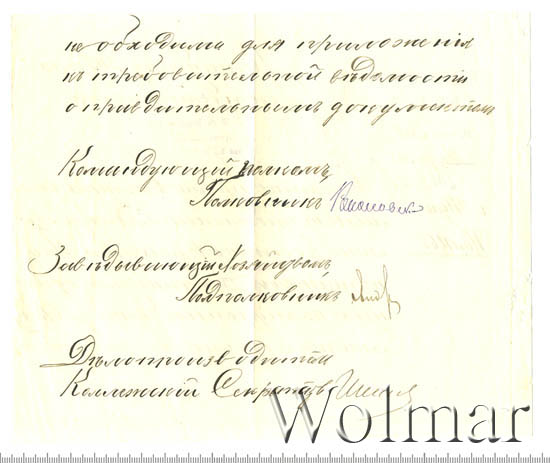 необходима для приложения
къ требовательной вѣдомости
оправдательнымъ документомъ
Командующій полкомъ,
Полковникъ
Завѣдывающій Хозяйствомъ,
Подполковникъ
Дѣлопроизводитель
Коллежскій Секретарь
Wolmar